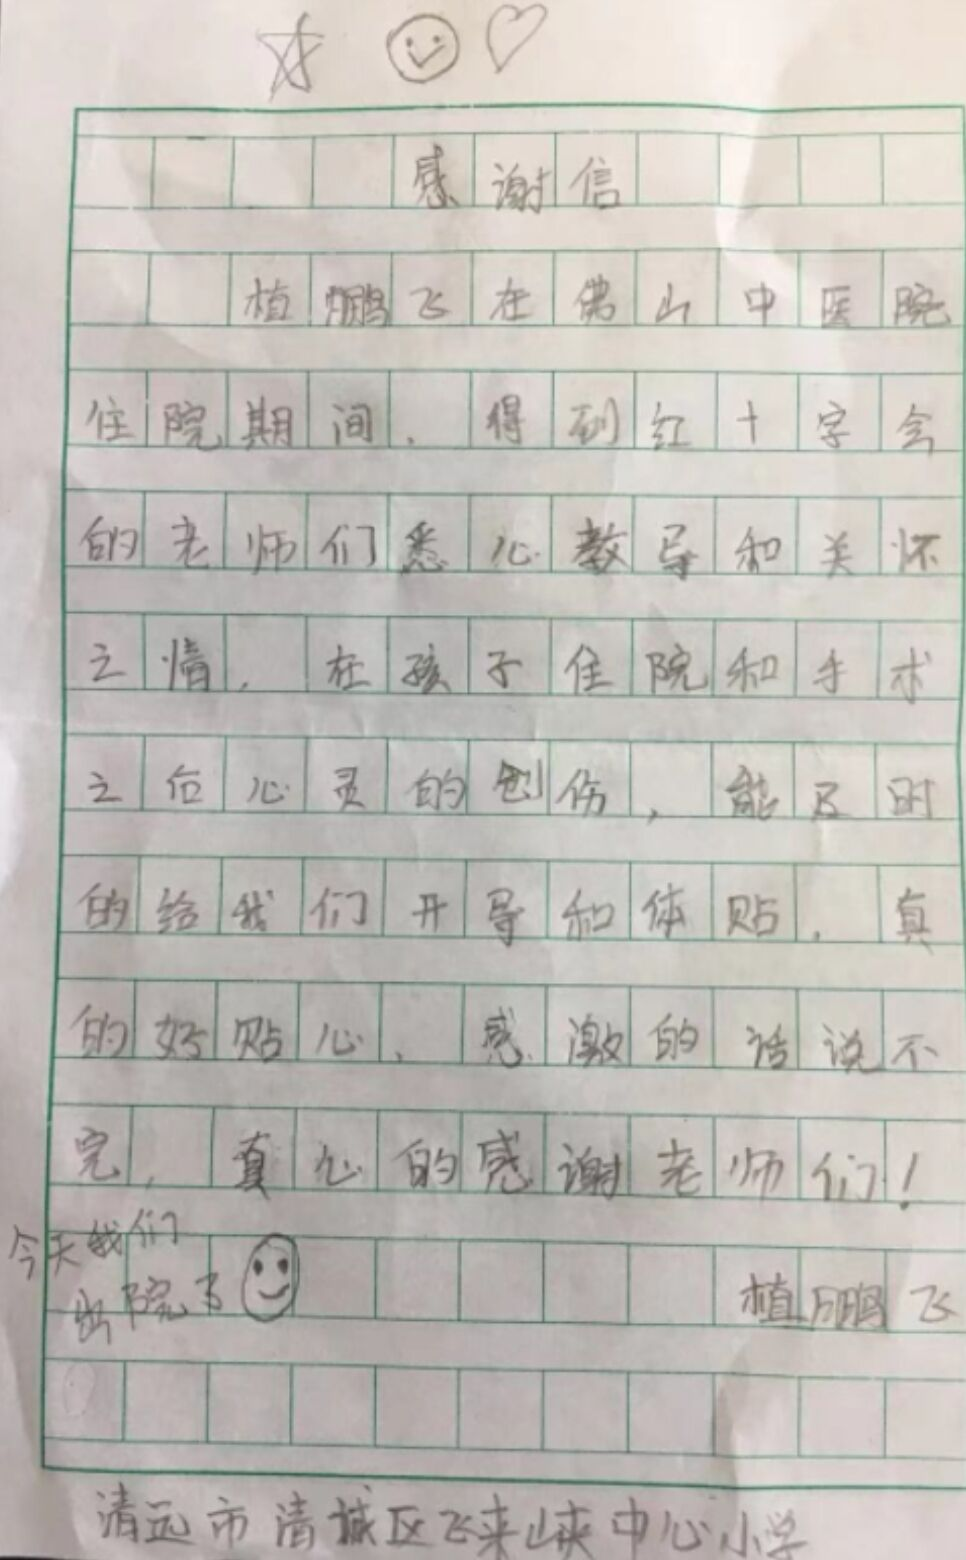 感谢信
植鹏飞在佛山中医院
住院期间，得到红十字会
的老师们悉心教导和关怀
之情，在孩子住院和手术
之后心灵的创伤，能及时
的给我们开导和体贴，真
的好贴心，感激的话说不
完，真心的感谢老师们！
今天我们
出院了
植鹏飞
清远市清城区飞来峡中心小学